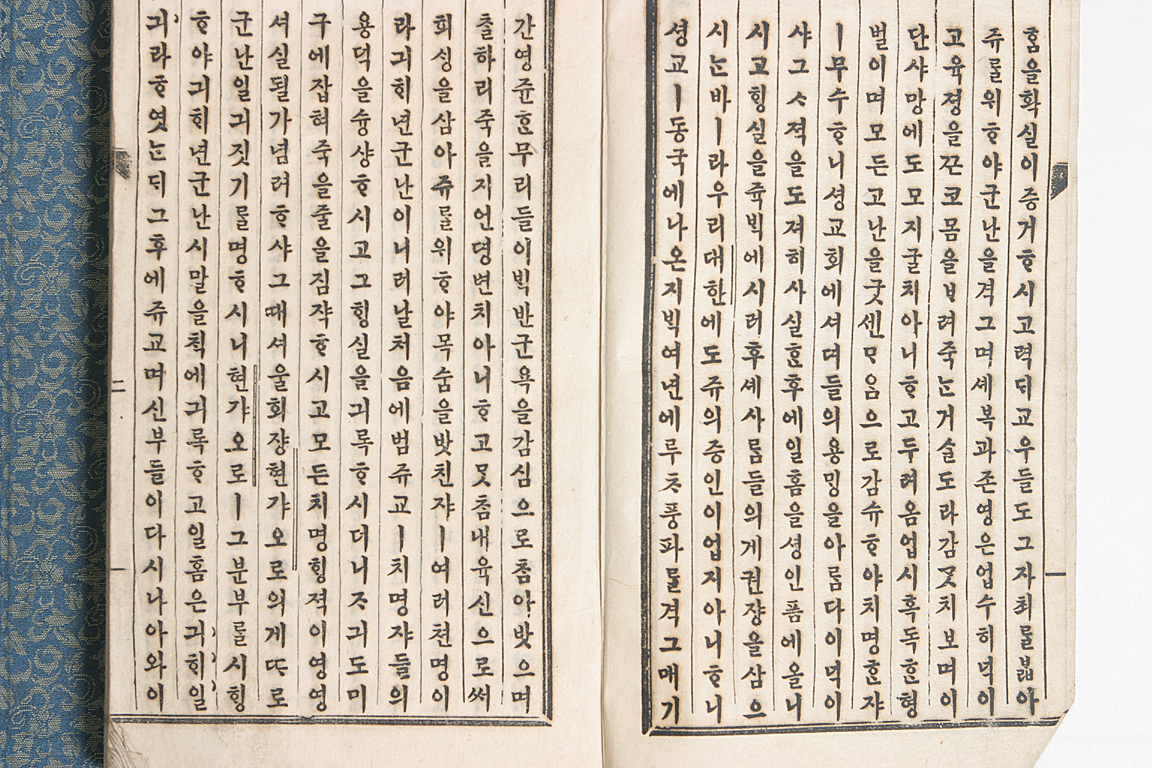 ᄒᆞᆷ을확실이증거ᄒᆞ시고력ᄃᆡ교우들도그자최ᄅᆞᆯᄇᆞᆲ아
쥬ᄅᆞᆯ위ᄒᆞ야군난을격그며셰복과존영은업수히넉이
고육졍을ᄭᅳᆫ코몸을ᄇᆞ려죽ᄂᆞᆫ거슬도라감ᄀᆞᆺ치보며이
단샤망에도모지굴치아니ᄒᆞ고두려옴업시혹독ᄒᆞᆫ형
벌이며모든고난을굿센ᄆᆞᄋᆞᆷ으로감슈ᄒᆞ야치명ᄒᆞᆫ쟈
ㅣ무수ᄒᆞ니셩교회에셔뎌들의용ᄆᆡᆼ을아ᄅᆞᆷ다이넉이
샤그ᄉᆞ젹을도져히사실ᄒᆞᆫ후에일홈을셩인픔에올니
시고ᄒᆡᆼ실을쥭ᄇᆡᆨ에시러후셰사ᄅᆞᆷ들의게권쟝을삼으
시ᄂᆞᆫ바ㅣ라우리대한에도쥬의증인이업지아니ᄒᆞ니
셩교ㅣ동국에나온지ᄇᆡᆨ여년에루ᄎᆞ풍파ᄅᆞᆯ격그매기
간영쥰ᄒᆞᆫ무리들이ᄇᆡᆨ반군욕을감심으로ᄎᆞᆷ아밧으며
ᄎᆞᆯ하리죽을지언뎡변치아니ᄒᆞ고ᄆᆞᆺᄎᆞᆷ내육신으로써
희ᄉᆡᆼ을삼아쥬ᄅᆞᆯ위ᄒᆞ야목숨을밧친쟈ㅣ여러쳔명이
라긔ᄒᆡ년군난이니러날처음에범쥬교ㅣ치명쟈들의
용덕을슝샹ᄒᆞ시고그ᄒᆡᆼ실을긔록ᄒᆞ시더니ᄌᆞ긔도미
구에잡혀죽을줄을짐쟉ᄒᆞ시고모든치명ᄒᆡᆼ적이영영
셔실될가념려ᄒᆞ샤그때셔울회쟝현갸오로의게ᄯᆞ로
군난일긔짓기ᄅᆞᆯ명ᄒᆞ시니현갸오로ㅣ그분부ᄅᆞᆯ시ᄒᆡᆼ
ᄒᆞ야긔ᄒᆡ년군난시말을ᄎᆡᆨ에긔록ᄒᆞ고일홈은긔ᄒᆡ일
긔라ᄒᆞ엿ᄂᆞᆫᄃᆡ그후에쥬교며신부들이다시나아와이
二